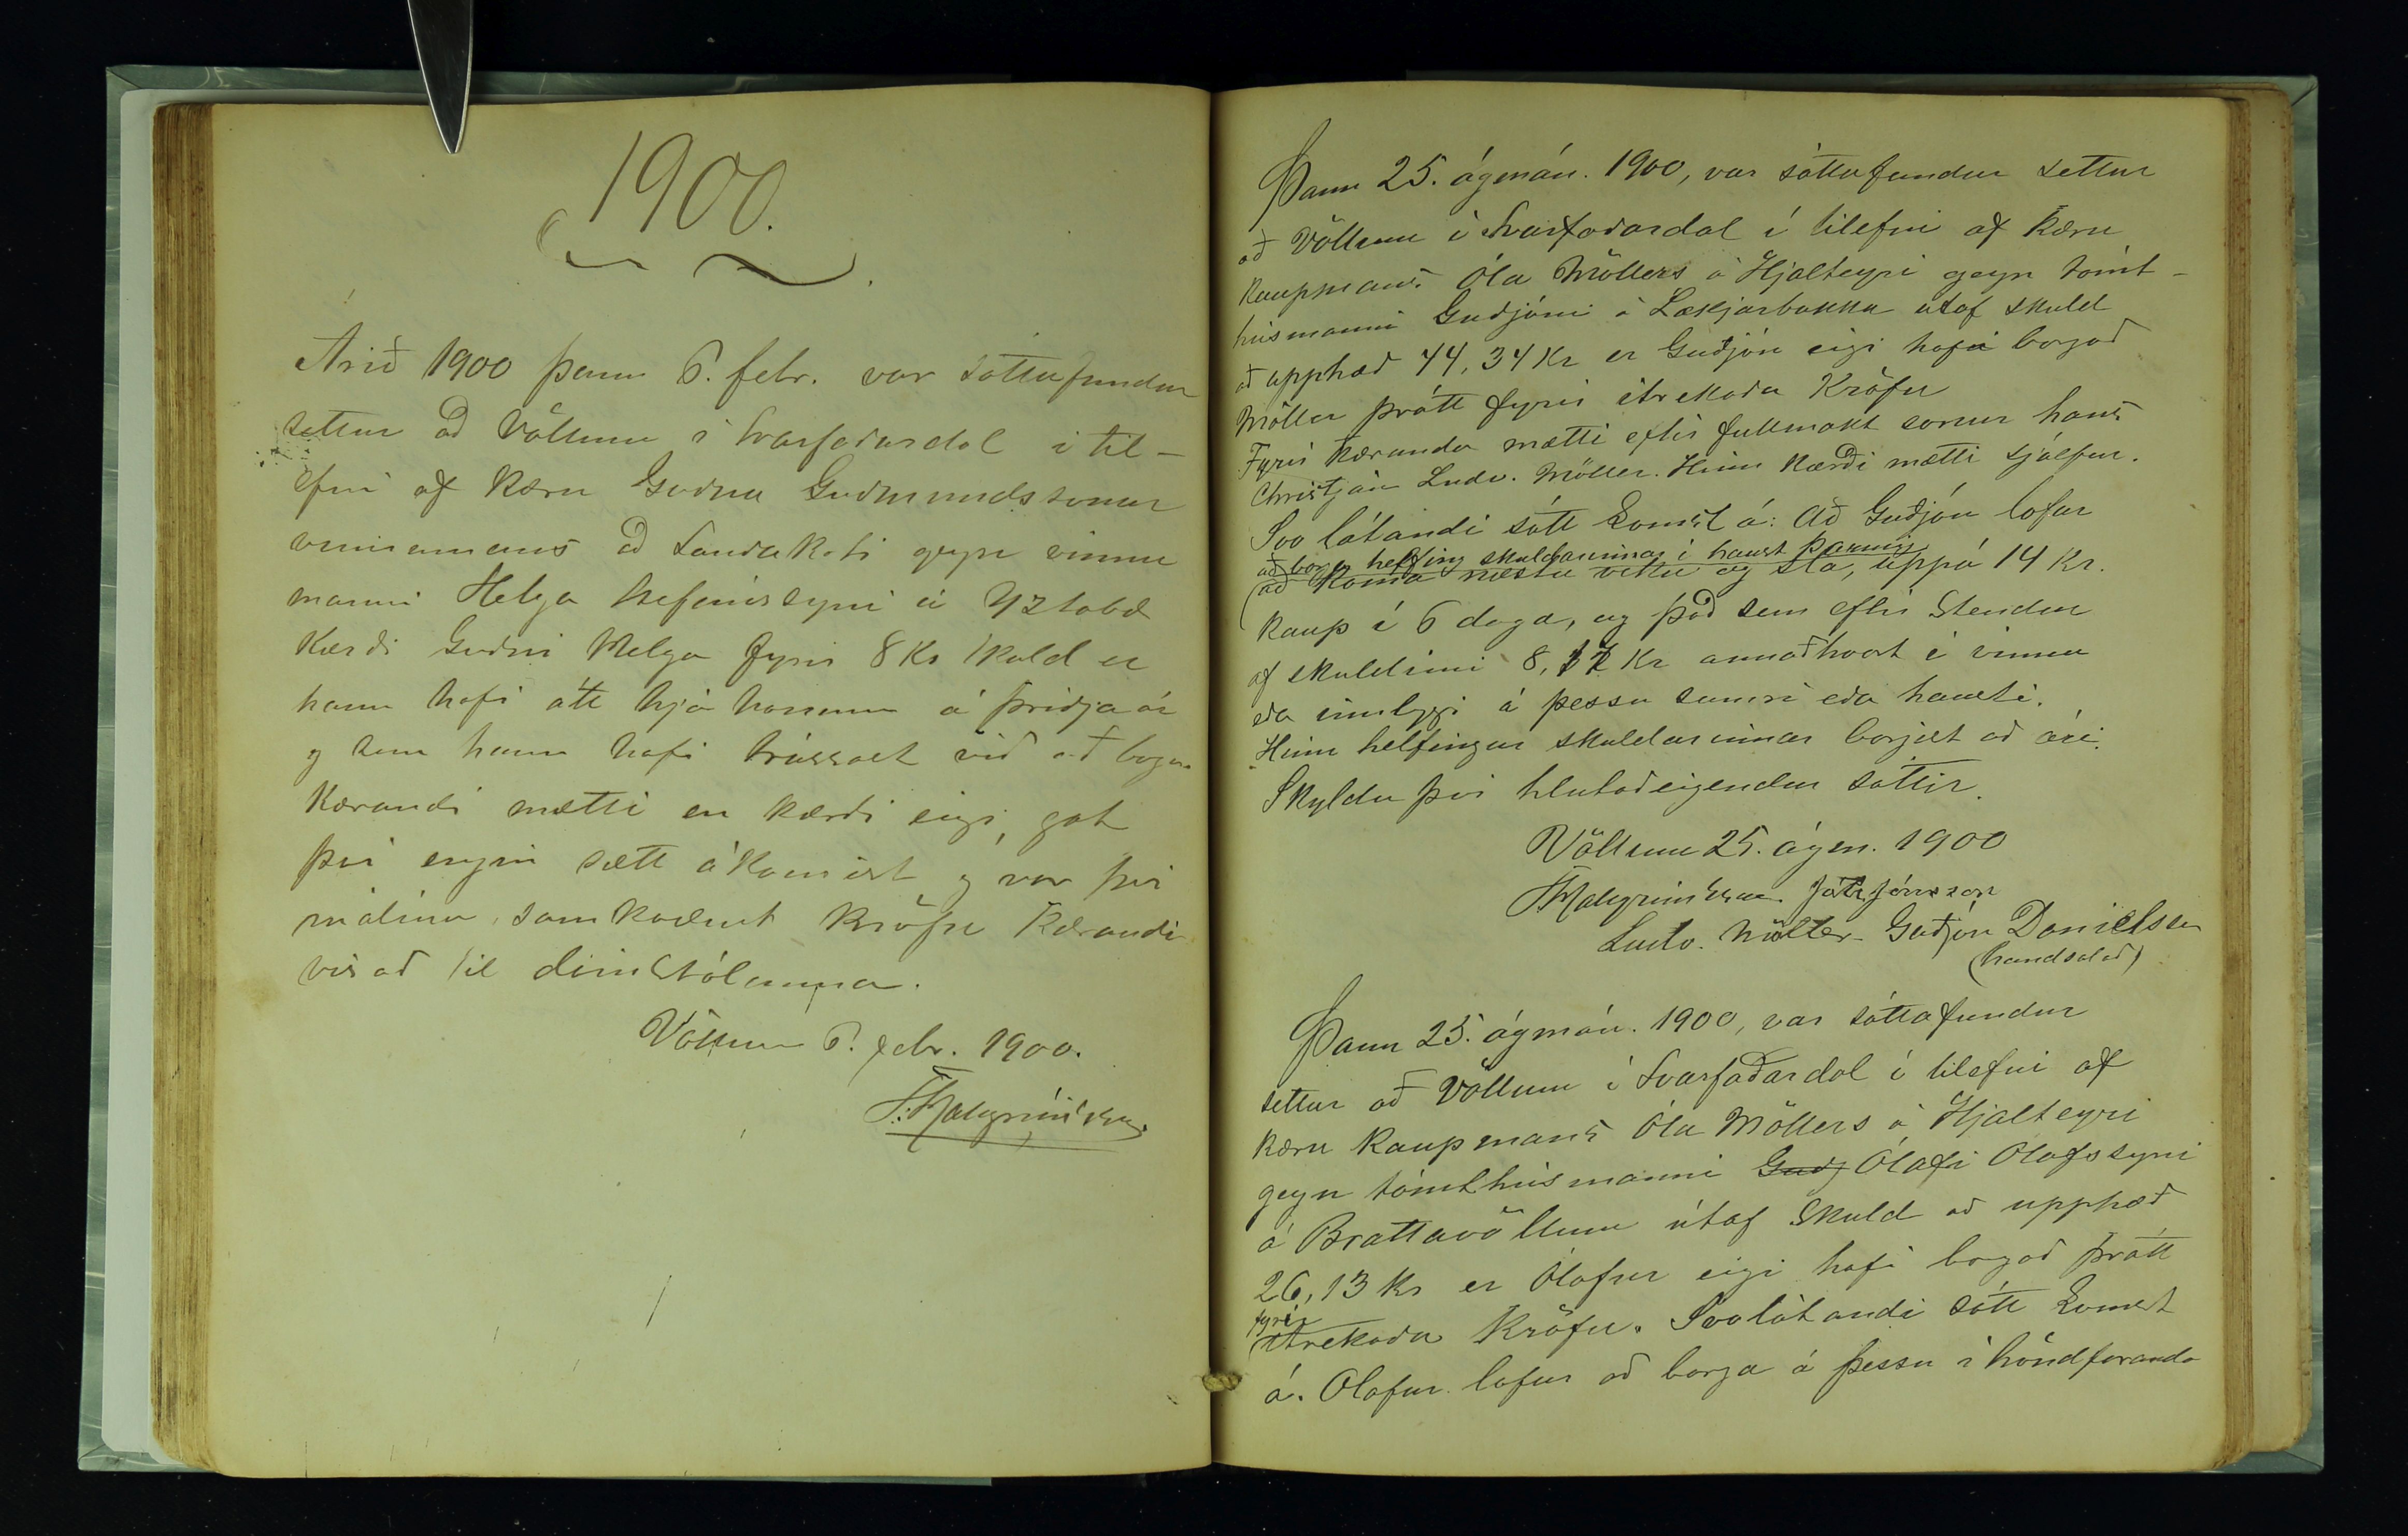 1900.
Árið 1900 þann 6. febr. var sáttafundur
settur að Völlum í Svarfaðardal í til-
efni af kæru Guðna Guðmundssonar
vinnumanns að Sandakoti gegn vinnu
manni Helga Stefánssyni á Yztabæ
Kærði Guðni Helga fyrir 8 Kr skuld er
hann hafi átt hjá honum á þriðja ár
og sem hann hafi þrássast við að borga
Kærandi mætti en kærði eigi, gat
því engin sætt ákomist, og var því
málinu, samkvæmt kröfu kæranda
vísað til dómstólanna.
Völlum 6. febr. 1900.
T: Hallgrímsson.
Þann 25. ágmán. 1900, var sáttafundur settur
að Völlum í Svarfaðardal í tilefni af kæru
kaupmanns Óla Möllers á Hjalteyri gegn tómt-
húsmanni Guðjóni á Lækjarbakka útaf skuld
að upphæð 44,34 Kr er Guðjón eigi hafi borgað
Möller þrátt fyrir ítrekaða kröfu
Fyrir kæranda mætti eftir fullmakt sonur hans
Christján Ludv. Möller. Hinn kærði mætti sjálfur.
Svo látandi sátt komst á: Að Guðjón lofar
að borga helfing skuldarinnar í haust þannig
að koma næstu viku og slá, uppá 14 Kr.
kaup í 6 daga, og það sem eftir stendur
af skuldinni 8,17 Kr annaðhvort í vinnu
eða innleggi á þessu sumri eða hausti.
Hinn helfingur skuldarinnar borgist að ári.
Skyldu því hlutaðeigendur sáttir.
Völlum 25. ágm. 1900
T Hallgrímsson Jóh. Jónsson
Ludv. Möller Guðjón Danielsson
(handsalað)
Þann 25. ágmán. 1900, var sáttafundur
settur að Völlum í Svarfaðardal í tilefni af
kæru kaupmanns Óla Möllers á Hjalteyri
gegn tómthúsmanni Guðj Ólafi Ólafssyni
á Brattavöllum útaf skuld að upphæð
26,13 Kr er Ólafur eigi hafi borgað þrátt
fyrir
ítrekaða kröfu. Svolátandi sátt komst
á. Ólafur lofar að borga á þessu í höndfaranda